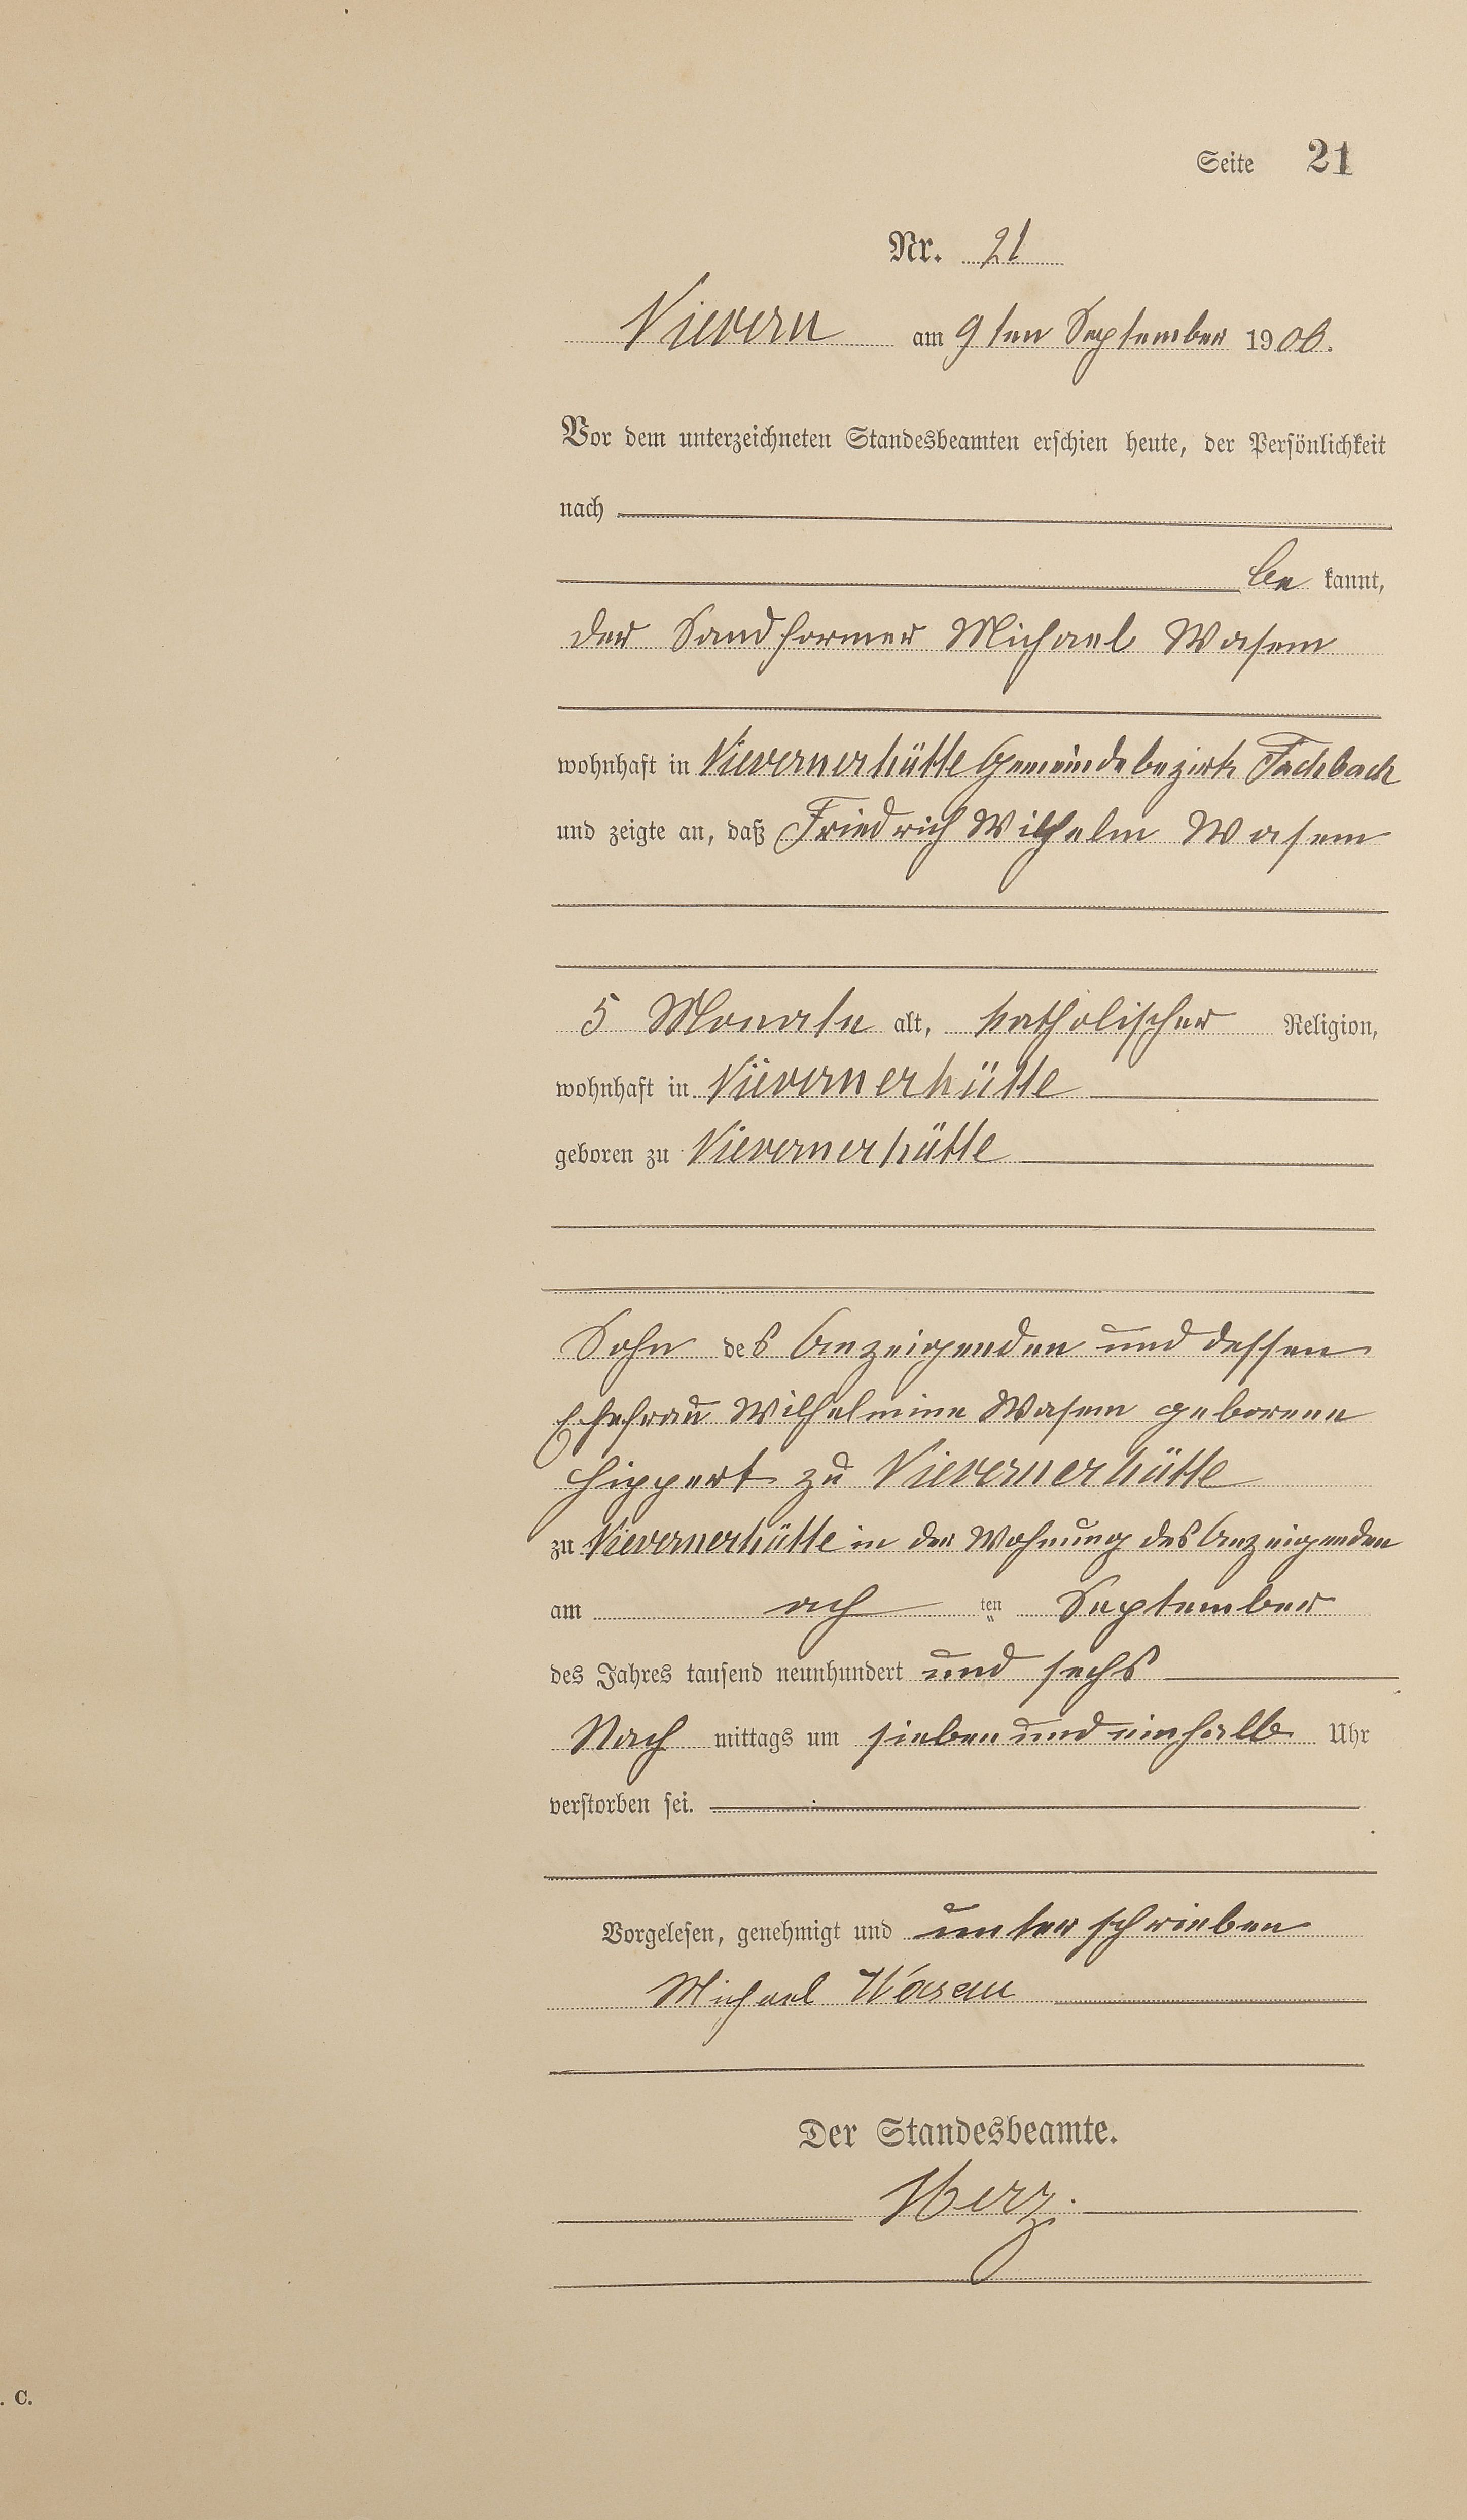 Seite 21
Nr. 21
Nievern am 9ten September 1906.
Vor dem unterzeichneten Standesbeamten erschien heute, der Persönlichkeit
nach
be kannt,
der Sandformer Michael Wasem
wohnhaft in Nievernerhütte Gemeindebezirk Fachbach
und zeigte an, daß Friedrich Wilhelm Wasem
5 Monate alt, katholischer Religion,
wohnhaft in Nievernerhütte
geboren zu Nievernerhütte
Sohn des Anzeigenden und dessen
Ehefrau Wilhelmine Wasem geborene
Hippert zu Nievernerhütte
zu Nievernerhütte in der Wohnung des Anzeigenden
am ach ten September
des Jahres tausend neunhundert und sechs
Nach mittags um sieben und einhalb Uhr
verstorben sei.
Vorgelesen, genehmigt und unterschrieben
Michael Wasem
Der Standesbeamte.
Herz.
. C.